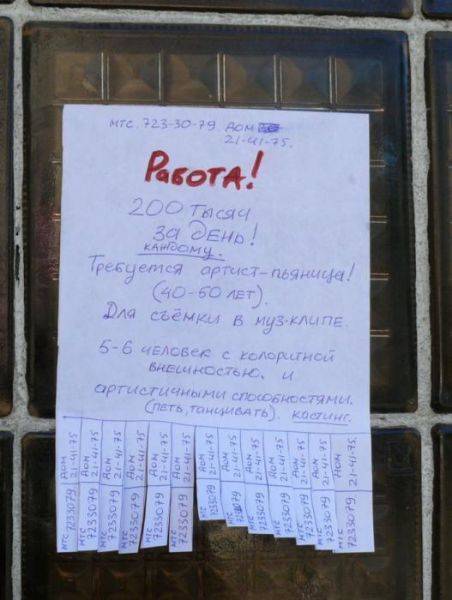 МТС. 723-30-79. ДОМ
21-41-75.
РАБОТА!
200 ТЫСЯЧ
ЗА ДЕНЬ!
КАЖДОМУ.
Требуется артист-пьяница!
(40-60 ЛЕТ).
Для съёмки в муз-клипе.
5-6 человек с колоритной
внешностью. и
артистичными способностями.
(петь, танцивать). кастинг.
МТС 7233079 ДОМ 21-41-75
МТС 7233079 ДОМ 21-41-75
МТС 7233079 ДОМ 21-41-75
МТС 7233079 ДОМ 21-41-75
МТС 7233079 ДОМ 21-41-75
МТС 7233079 ДОМ 21-41-75
МТС 7233079 ДОМ 21-41-75
МТС 7233079 ДОМ 21-41-75
МТС 7233079 ДОМ 21-41-75
МТС 7233079 ДОМ 21-41-75
МТС 7233079 ДОМ 21-41-75
МТС 7233079 ДОМ 21-41-75